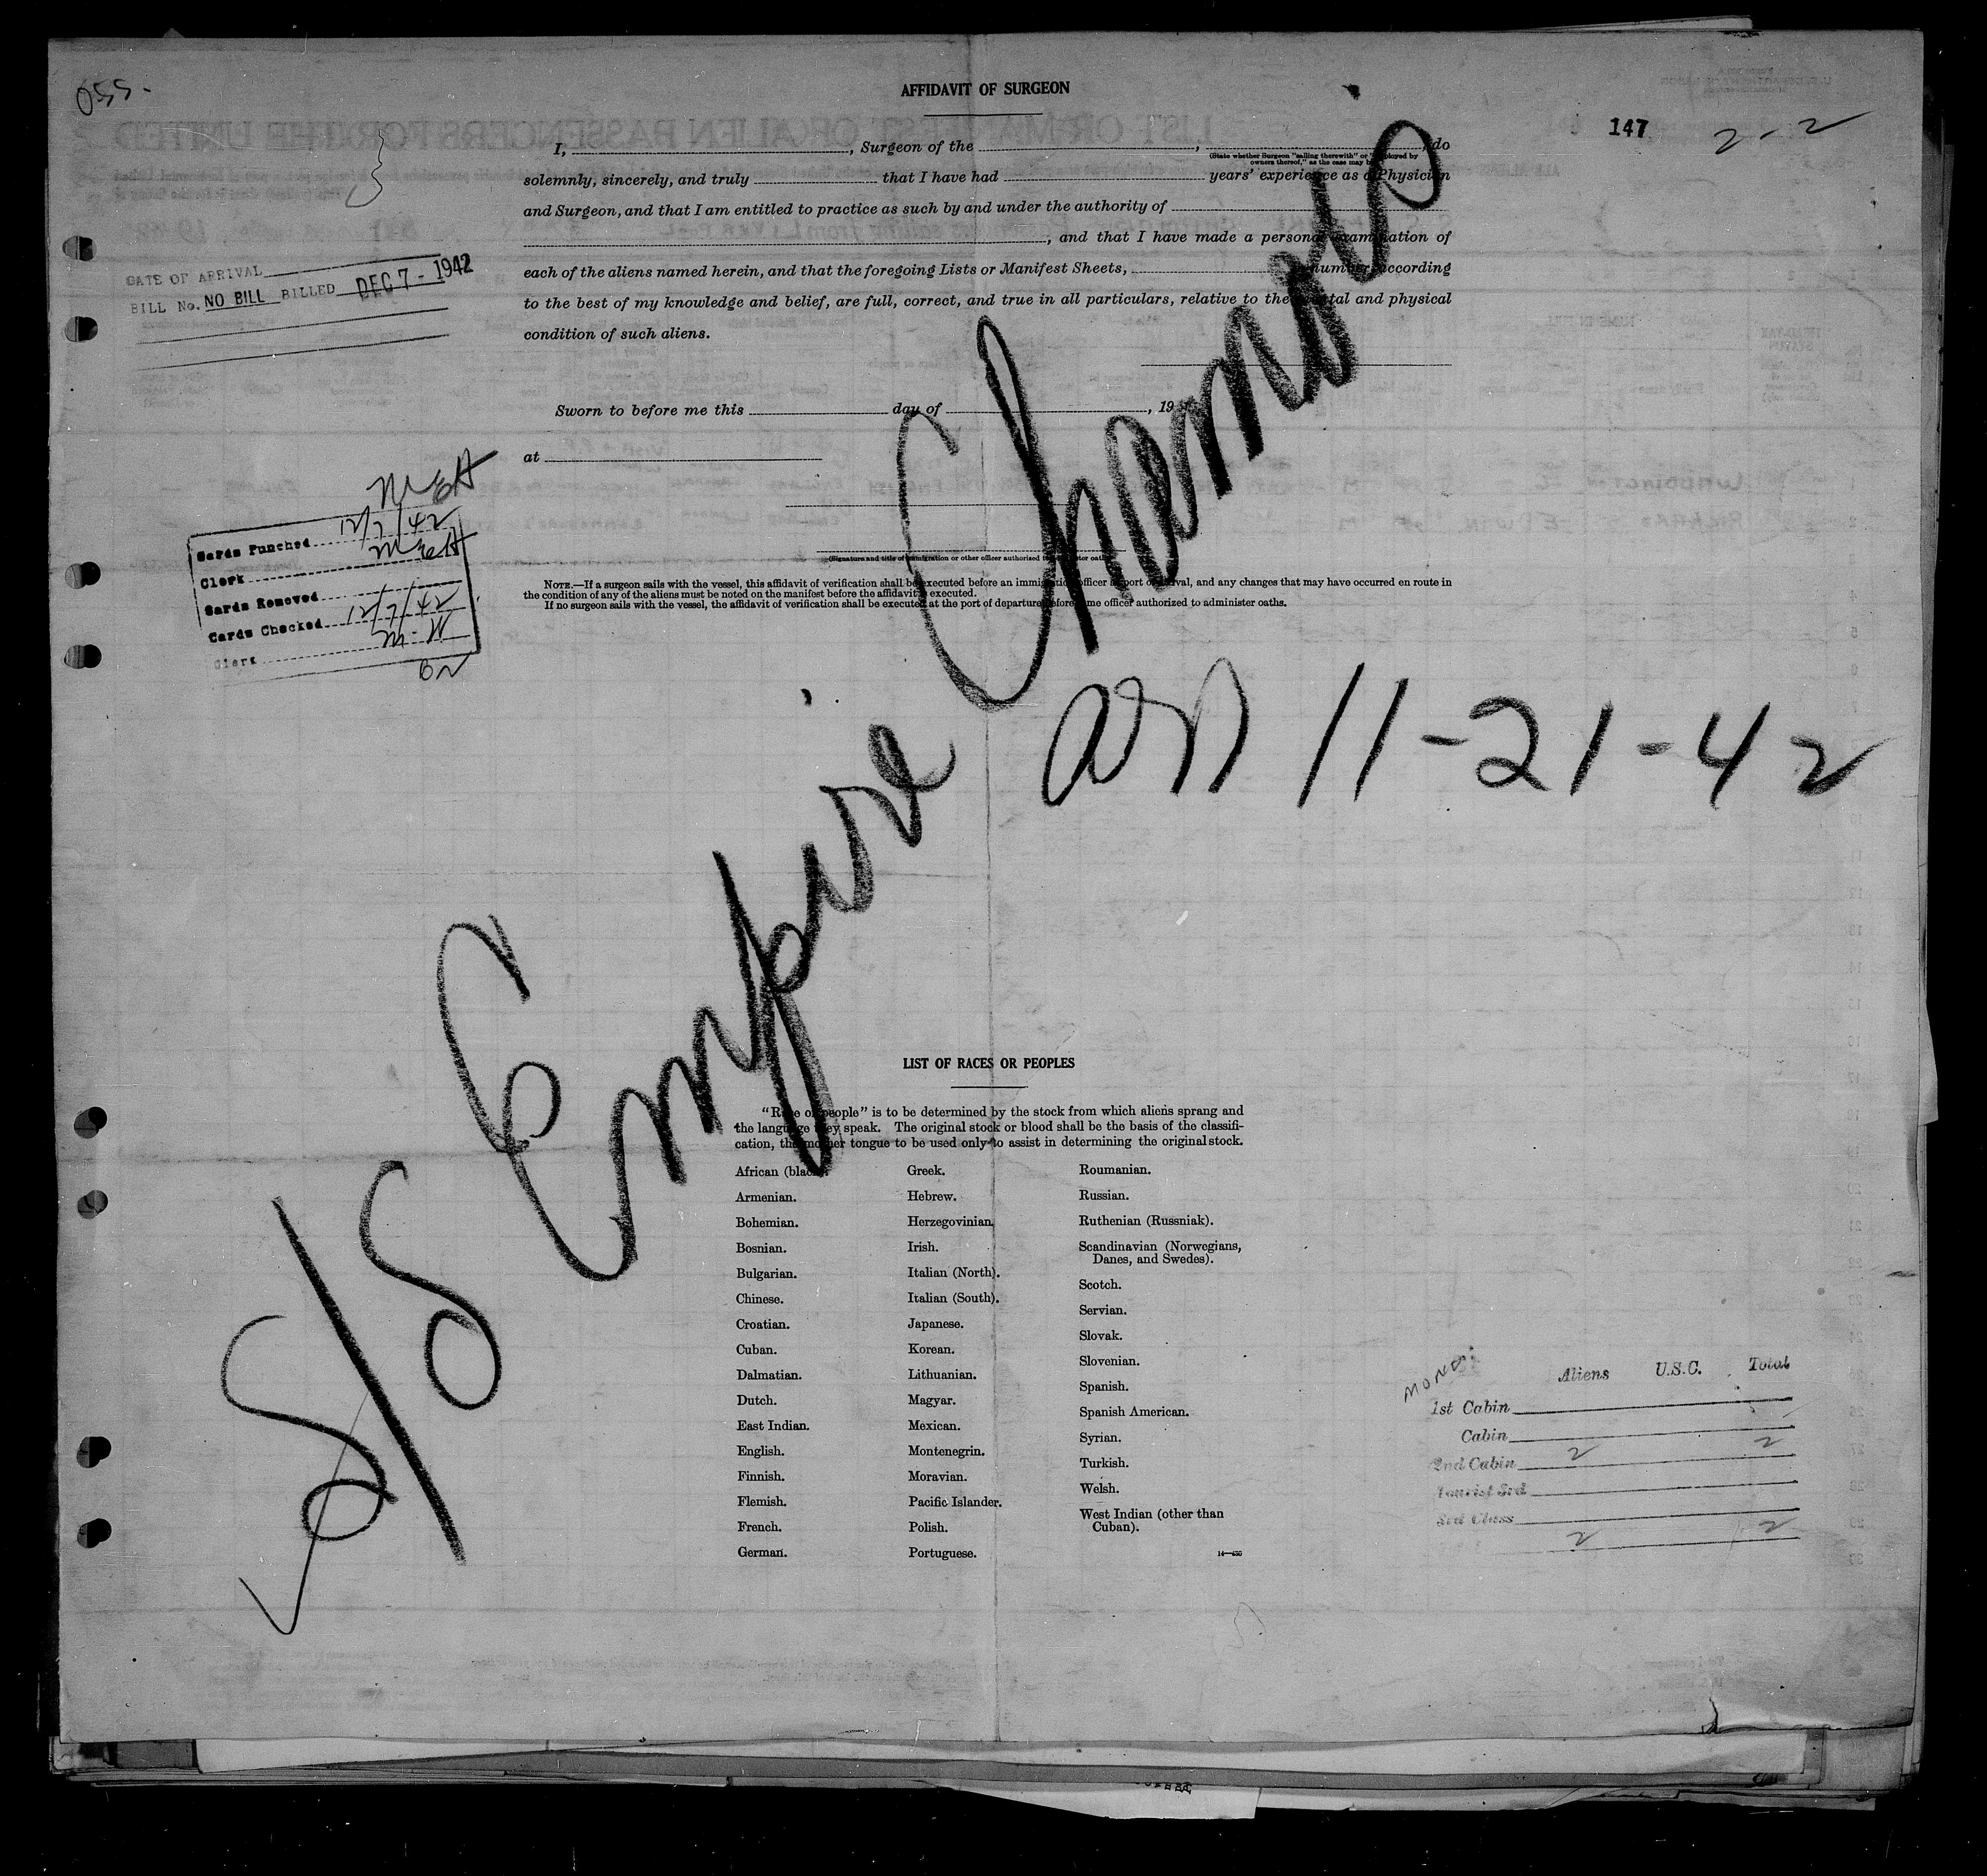 055-
AFFIDAVIT OF SURGEON
147
2-2
I, , Surgeon of the , , do
(State whether Surgeon "sailing therewith" or "employed by owners thereof," as the case may be)
solemnly, sincerely, and truly that I have had years' experience as a Physician
and Surgeon, and that I am entitled to practice as such by and under the authority of
, and that I have made a personal examination of
each of the aliens named herein, and that the foregoing Lists or Manifest Sheets, number according
to the best of my knowledge and belief, are full, correct, and true in all particulars, relative to the mental and physical
condition of such aliens.
DATE OF ARRIVAL
BILL No. NO BILL BILLED DEC 7 - 1942
Sworn to before me this day of , 19
at
(Signature and title of immigration or other officer authorized to administer oaths)
NOTE.—If a surgeon sails with the vessel, this affidavit of verification shall be executed before an immigration officer at port of arrival, and any changes that may have occurred en route in
the condition of any of the aliens must be noted on the manifest before the affidavit is executed.
If no surgeon sails with the vessel, the affidavit of verification shall be executed at the port of departure before some officer authorized to administer oaths.
Cards Punched 12/7/42
Clerk
Cards Removed
Cards Checked 12/7/42
Clerk
S/S Empire
arr 11-21-42
LIST OF RACES OR PEOPLES
"Race or people" is to be determined by the stock from which aliens sprang and
the language they speak. The original stock or blood shall be the basis of the classifi-
cation, the mother tongue to be used only to assist in determining the original stock.
African (black).
Armenian.
Bohemian.
Bosnian.
Bulgarian.
Chinese.
Croatian.
Cuban.
Dalmatian.
Dutch.
East Indian.
English.
Finnish.
Flemish.
French.
German.
Greek.
Hebrew.
Herzegovinian.
Irish.
Italian (North).
Italian (South).
Japanese.
Korean.
Lithuanian.
Magyar.
Mexican.
Montenegrin.
Moravian.
Pacific Islander.
Polish.
Portuguese.
Roumanian.
Russian.
Ruthenian (Russniak).
Scandinavian (Norwegians,
Danes, and Swedes).
Scotch.
Servian.
Slovak.
Slovenian.
Spanish.
Spanish American.
Syrian.
Turkish.
Welsh.
West Indian (other than
Cuban).
Aliens U.S.C. Total
1st Cabin
Cabin
2nd Cabin 2 2
Tourist 3rd
3rd Class
2 2